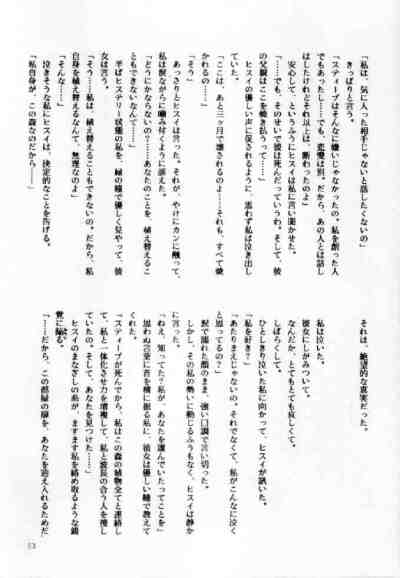 「私は、気に入った相手じゃないと話したくないの」
きっぱりと言う。
「スティーブはそんなに嫌いじゃなかったの。私を創った人
でもあったし……でも、恋愛は別。だから、あの人とは話し
はしたけれどそれ以上は、断わったのよ」
安心して、というふうにヒスイは私に言い聞かせた。
「……でも、そのせいで彼は拒んだっていうわ。そして、彼
の父親はここを焼き払うって……」
ヒスイの優しい声に促されるように、思わず私は泣き出し
ていた。
「ここは、あと三ヶ月で壊されるのよ……それも、すべて焼
かれるの……」
「そう」
あっさりとヒスイは言った。それが、やけにカンに触って、
私は涙ながらに噛み付くように訴えた。
「どうにかならないの？……あなたのことを、植え替えるこ
ともできないなんて……」
半ばヒステリー状態の私を、緑の瞳で優しく見やって、彼
女は言う。
「そう…私は、植え替えることもできないの。だから、私
自身を植え替えるなんて、無理なのよ」
「そんな……」
泣きそうな私にヒスイは、決定的なことを告げる。
「私自身が、この森なのだから……」
それは、絶望的な真実だった。
私は泣いた。
彼女にしがみついて。
なんだか、とてもとても哀しくて。
しばらくして。
ひとしきり泣いた私に向かって、ヒスイが訊いた。
「私を好き？」
「あたりまえじゃないの。それでなくて、私がこんなに泣く
と思ってるの？」
涙で濡れた顔のまま、強い口調で言い切った。
しかし、その私の勢いに動じるふうもなく、ヒスイは静か
に言った。
「ねえ、知ってた？私が、あなたを選んでいたってことを」
思わぬ言葉に首を横に振る私に、彼女は優しい瞳で教えて
くれた。
「スティーブが死んでから、私はこの森の植物全てと連絡し
て、私と一体化させ力を増幅して、私と波長の合う人を捜し
ていたの。そして、あなたを見つけた……」
ヒスイのまなざしの糸が、ますます私を絡め取るような錯
覚に陥る。
「……だから、この部屋の扉を、あなたを迎え入れるためだ
53